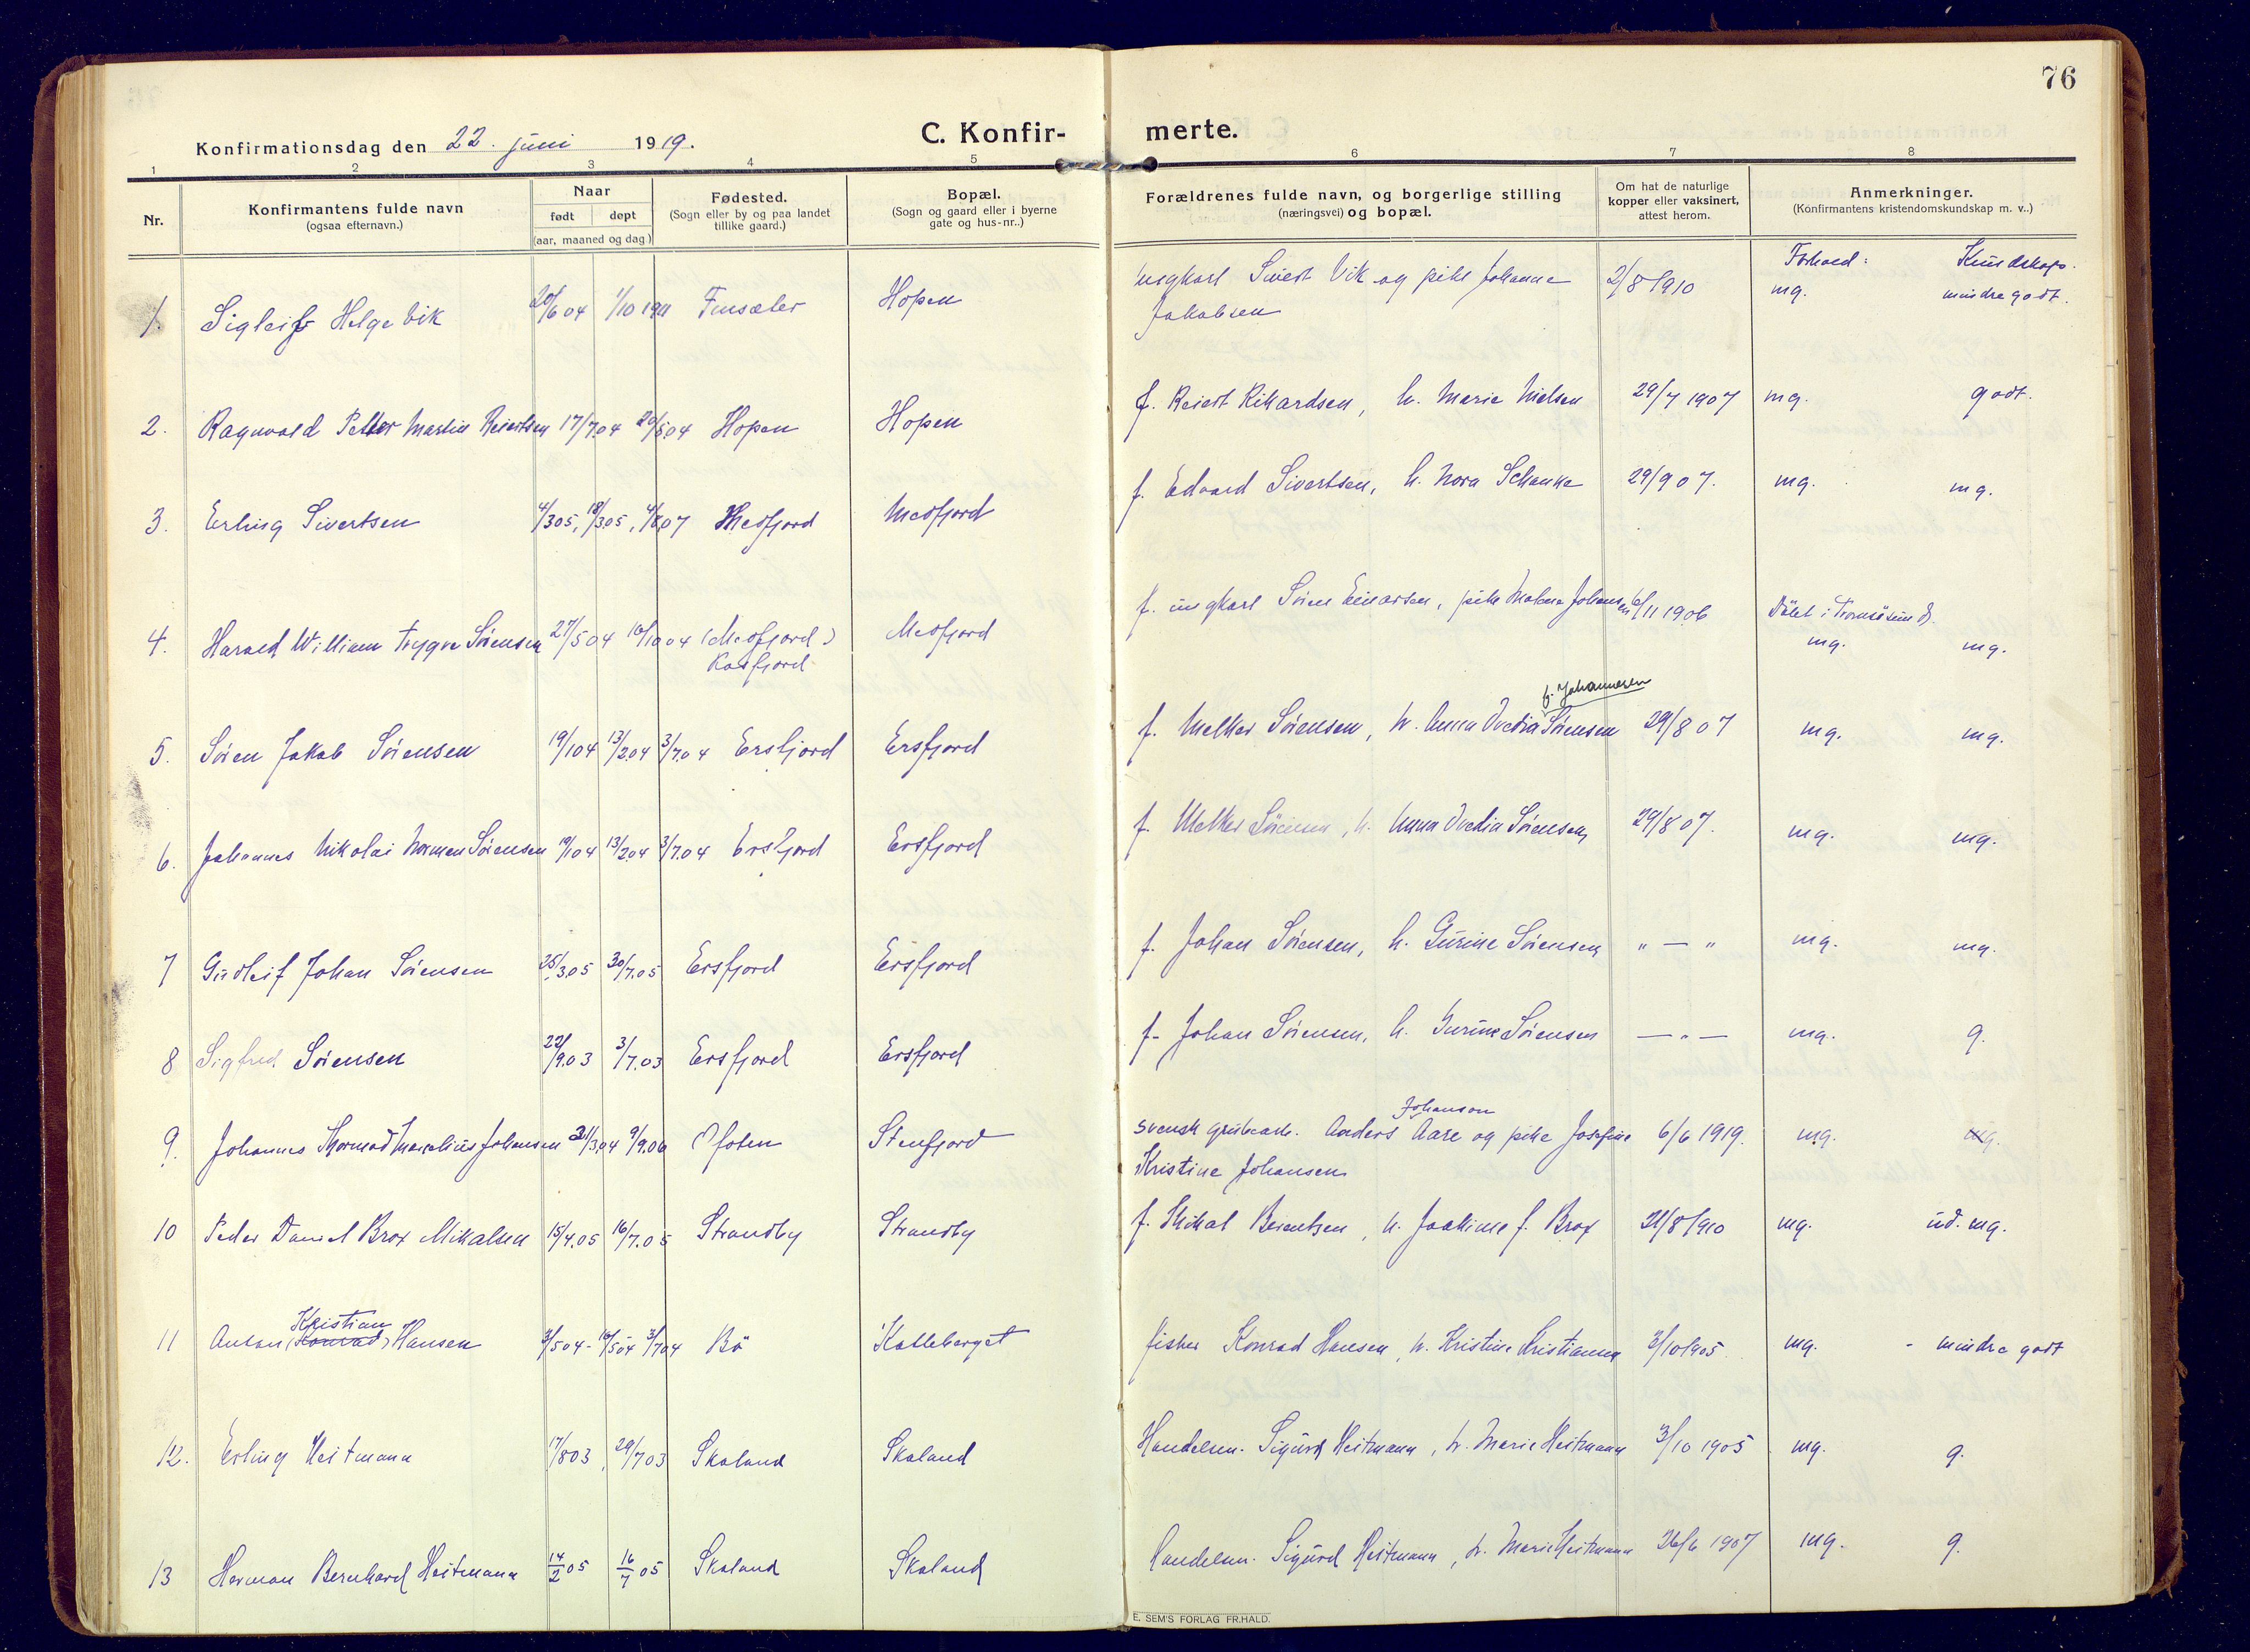 76
Konfirmationsdag den 22. juni 1919.
C. Konfir- merte.
1 2 3 4 5 6 7 8
Nr.
Konfirmantens fulde navn
(ogsaa efternavn.)
Naar
født døpt
(aar, maaned og dag.)
Fødested.
(Sogn eller by og paa landet
tillike gaard.)
Bopæl.
(Sogn og gaard eller i byerne
gate og hus-nr..)
Forældrenes fulde navn, og borgerlige stilling
(næringsvei) og bopæl.
Om hat de naturlige
kopper eller vaksinert,
attest herom.
Anmerkninger.
(Konfirmantens kristendomskundskap m. v..)
Forhold: Kundskap.
1. Sigleif Helge Vik 20/6 04 1/10 1911 Finsæter Hopen ungkarl Sivert Vik og pike Johanne 2/8 1910 mg. mindre godt.
Jakobsen
2. Ragnvald Petter Martin Reiertsen 17/7.04 20/5.04 Hopen Hopen f. Reiert Rikardsen, h. Marie Nielsen 29/7 1907 mg. godt.
3. Erling Sivertsen 4/3 05, 18/3.05, 4/8.07 Mefjord Mefjord f. Edvard Sivertsen, h. Nora Schanke 29/9 07. mg. mg.
4. Harald William Trygve Sörensen 27/5 04 16/10 04 (Mefjord) Mefjord f. ungkarl Sören Einarsen, pike Malene Johansen 6/11 1906 Döbt i Tromsösund.
Kasfjord mg. mg.
f. Johannesen
5. Sören Jakob Sörensen 19/1 04 13/2.04 3/7.04 Ersfjord Ersfjord f. Melker Sörensen, h. Anna Ovedia Sörensen 29/8 07 mg. mg.
6. Johannes Nikolai Normen Sörensen 19/1 04 13/2.04 3/7.04 Ersfjord Ersfjord f. Melker Sörensen, h. Anna Ovedia Sörensen 29/8 07. mg. mg.
7 Gudleif Johan Sörensen 25/3.05 30/7.05 Ersfjord Ersfjord f. Johan Sörensen, h. Gurine Sörensen " — " mg. mg.
8 Sigfred Sörensen 22/9.03 3/7.03 Ersfjord Ersfjord f. Johan Sörensen, h. Gurine Sörensen — " — mg. g.
Johanson
9. Johannes Thormod Marselius Johansen 31/3.04 9/9.06 Ofoten Stenfjord svensk grubearb. Anders Aare og pike Josefine 6/6 1919. mg. mg.
Kristine Johansen
10 Peder Daniel Brox Mikalsen 15/4.05 16/7.05 Strandby Strandby f. Mikal Berentsen, h. Joakime f. Brox 21/8 1910 mg. ud. mg.
Kristian
11 Anton (Konrad) Hansen 3/5 04 - 16/5 04 3/7 04 Bö Kolleberget fisker Konrad Hansen, h. Kristine Kristianna 3/10 1905 mg. - mindre godt
12. Erling Heitmann 17/8 03, 29/7 03 Skaland Skaland Handelsm. Sigurd Heitmann, h. Marie Heitmann 3/10 1905 mg. g.
13 Herman Bernhard Heitmann 14/2 05 16/7 05 Skaland Skaland Handelsm. Sigurd Heitmann, h. Marie Heitmann 26/6 1907 mg. g.
E. SEM'S FORLAG FR.HALD.